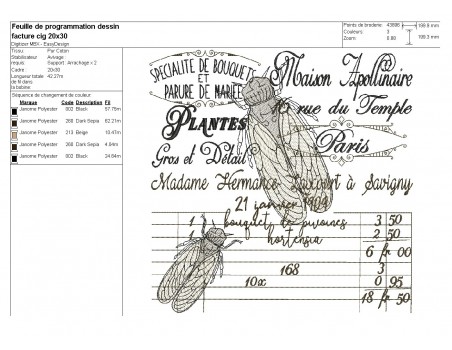 Feuille de programmation dessin
facture cig 20x30
Digitizer MBX - EasyDesign
Points de broderie 43886
Couleurs 3
Zoom 0.88
199.8 mm
199.3 mm
Tissu : Pur Coton
Stabilisateur Avivage :
requis : Support : Arrachable x 2
Cadre 20x30
Longueur totale 42.27m
de fil dans
la bobine:
Séquence de changement de couleur
Marque Code Description Fil
Janome Polyester 002 Black 57.79m
Janome Polyester 260 Dark Sepia 62.21m
Janome Polyester 213 Beige 10.47m
Janome Polyester 260 Dark Sepia 4.84m
Janome Polyester 002 Black 24.84m
SPECIALITE DE BOUQUETS
ET
PARURE DE MARIÉE
Maison Apollinaire
rue du Temple
PLANTES
Paris
Gros et Détail
Madame Hermance à Savigny
21 janvier
1 bouquet de pivoines 3 50
1 hortensia 2 50
6 fr 00
168 3
10x 0 95
18 fr 50